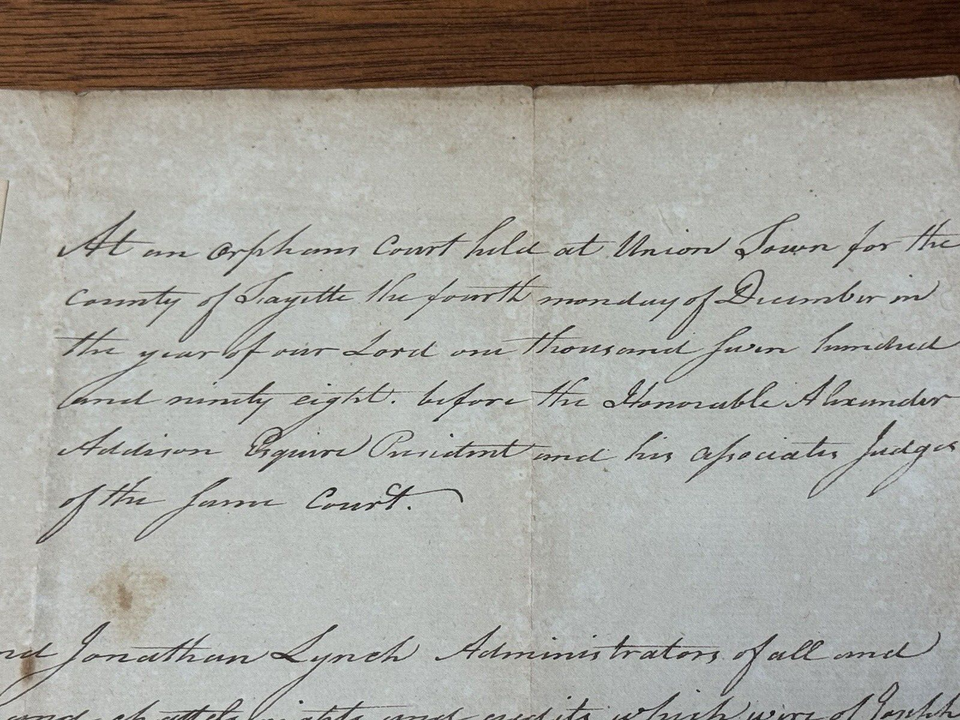 At an orphans Court held at Union Town for the
county of Fayette the fourth monday of December in
the year of our Lord one thousand seven hundred
and ninety eight. before the Honorable Alexander
Addison Esquire President and his associates Judges
of the same Court.
nd Jonathan Lynch Administrators of all and
and chattels rights and credits which were of Joseph